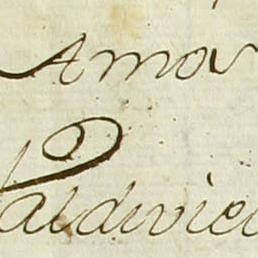 Amor
Valdivie